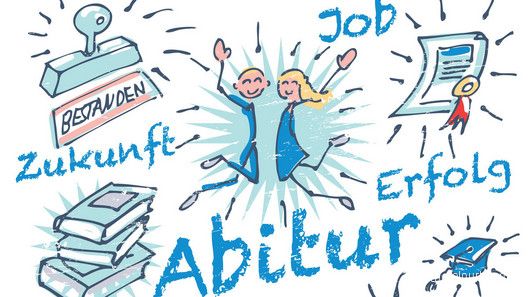 Job
BESTANDEN
Zukunft
Erfolg
Abitur